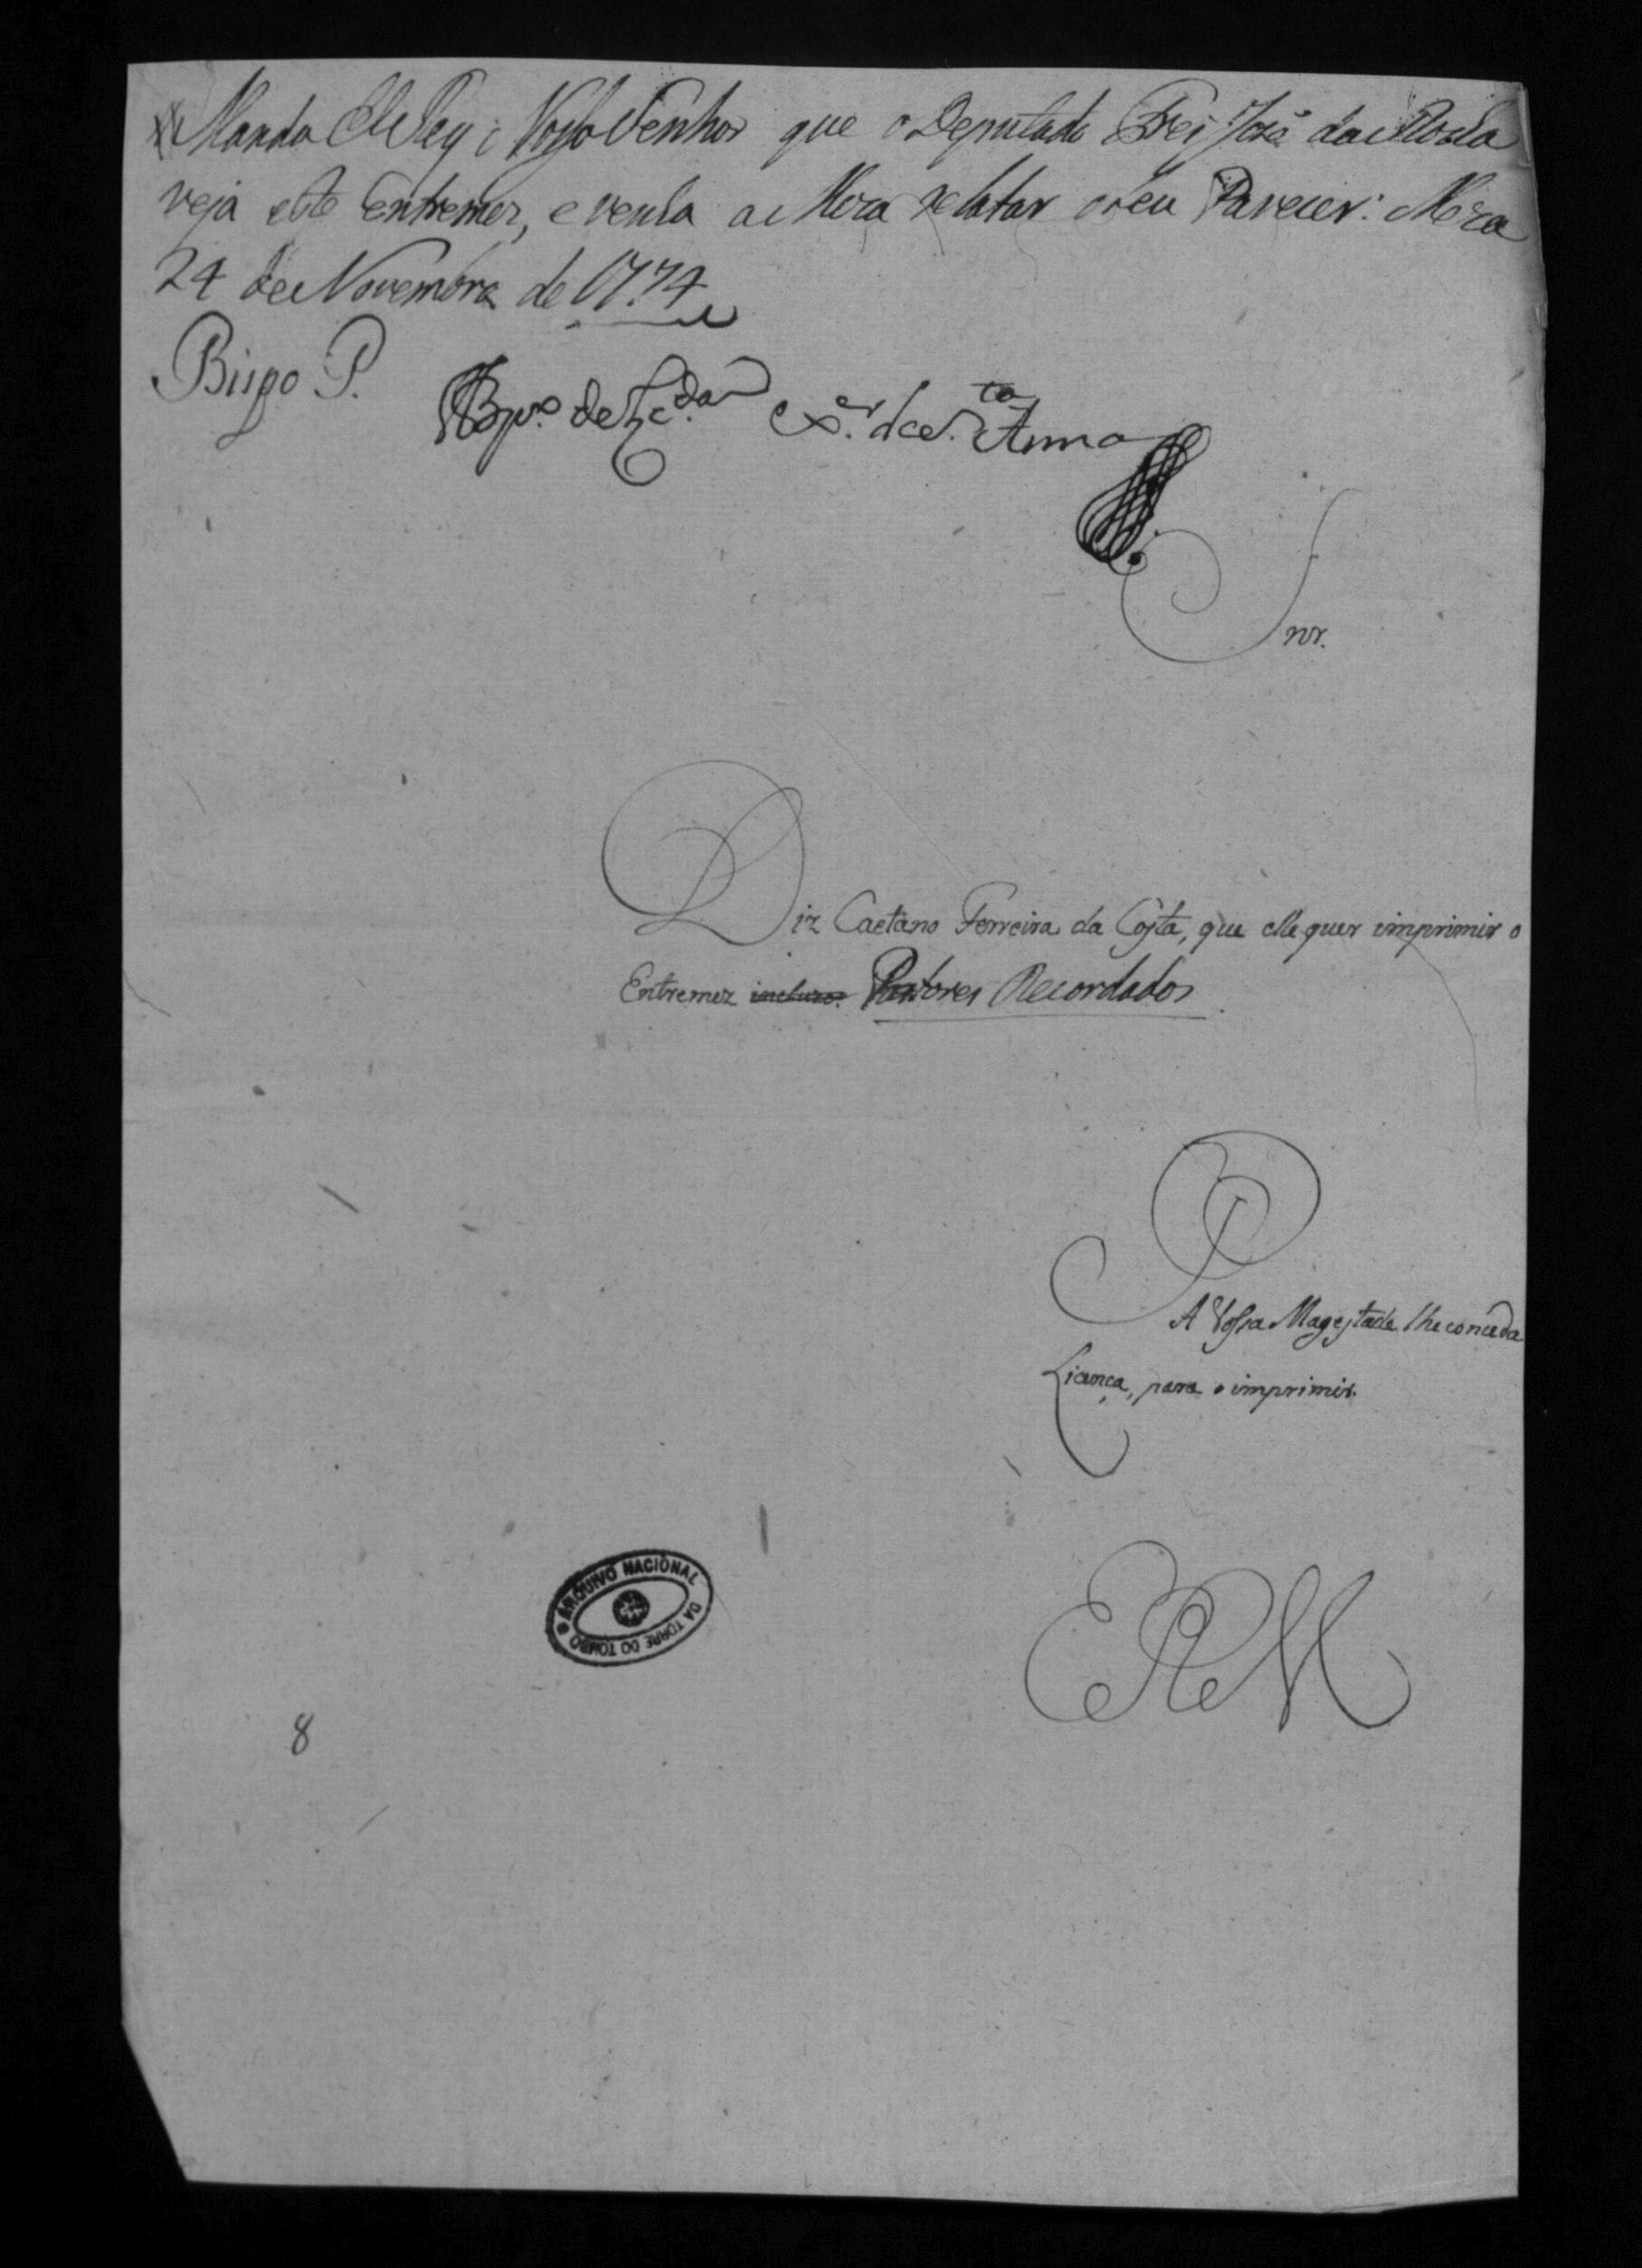 Manda ElRey Nosso Senhor que o Deputado Frei Joze da Rocha
veja este Entremez, e venha a Meza relatar o seu Parecer: Meza
24 de Novembro de 1774
Bispo P.
Anna
Snr.
Diz Caetano Ferreira da Costa, que elle quer imprimir o
Entremez incluzo. Pastores Recordados
P
A Vossa Magestade lhe conceda
Licença, para o imprimir.
ERM
ARQUIVO NACIONAL
DA TORRE DO TOMBO
8